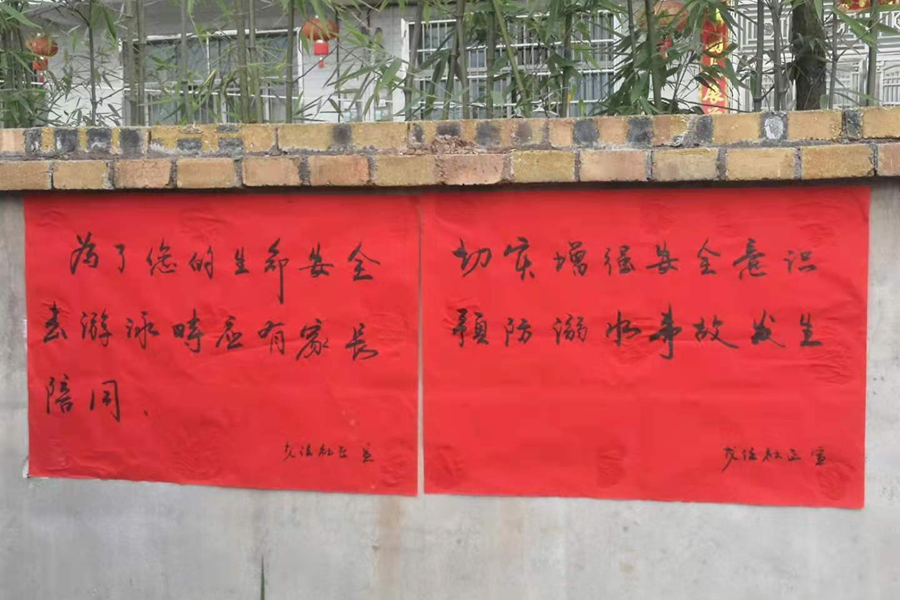 为了您的生命安全
去游泳时应有家长
陪同、
社区 宣
切实增强安全意识
预防溺水事故发生
社区 宣
展